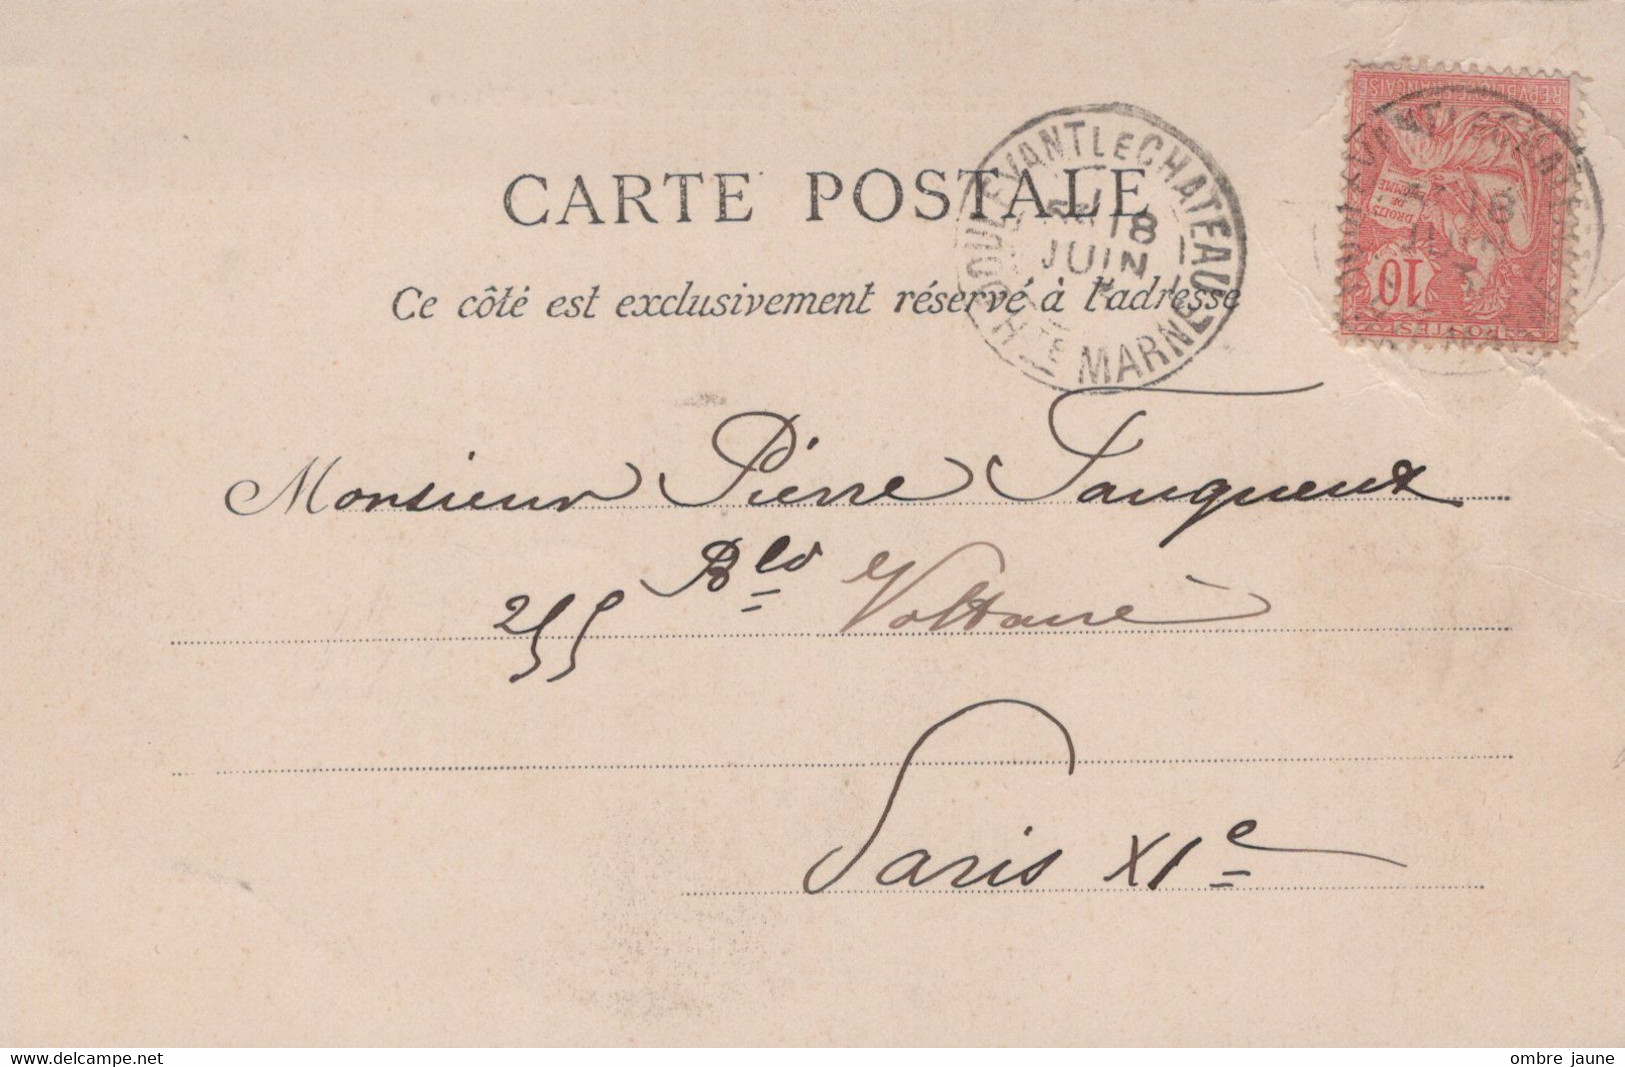 CARTE POSTALE
Ce côté est exclusivement réservé à l'adresse
DOULEVANT LE CHATEAU
18
JUIN
HTE MARNE
REPUBLIQUE FRANÇAISE
DROITS
DE
L'HOMME
10
POSTES
Monsieur Pierre Fauqueux
255 Bld Voltaire
Paris XIe
www.delcampe.net
ombre jaune